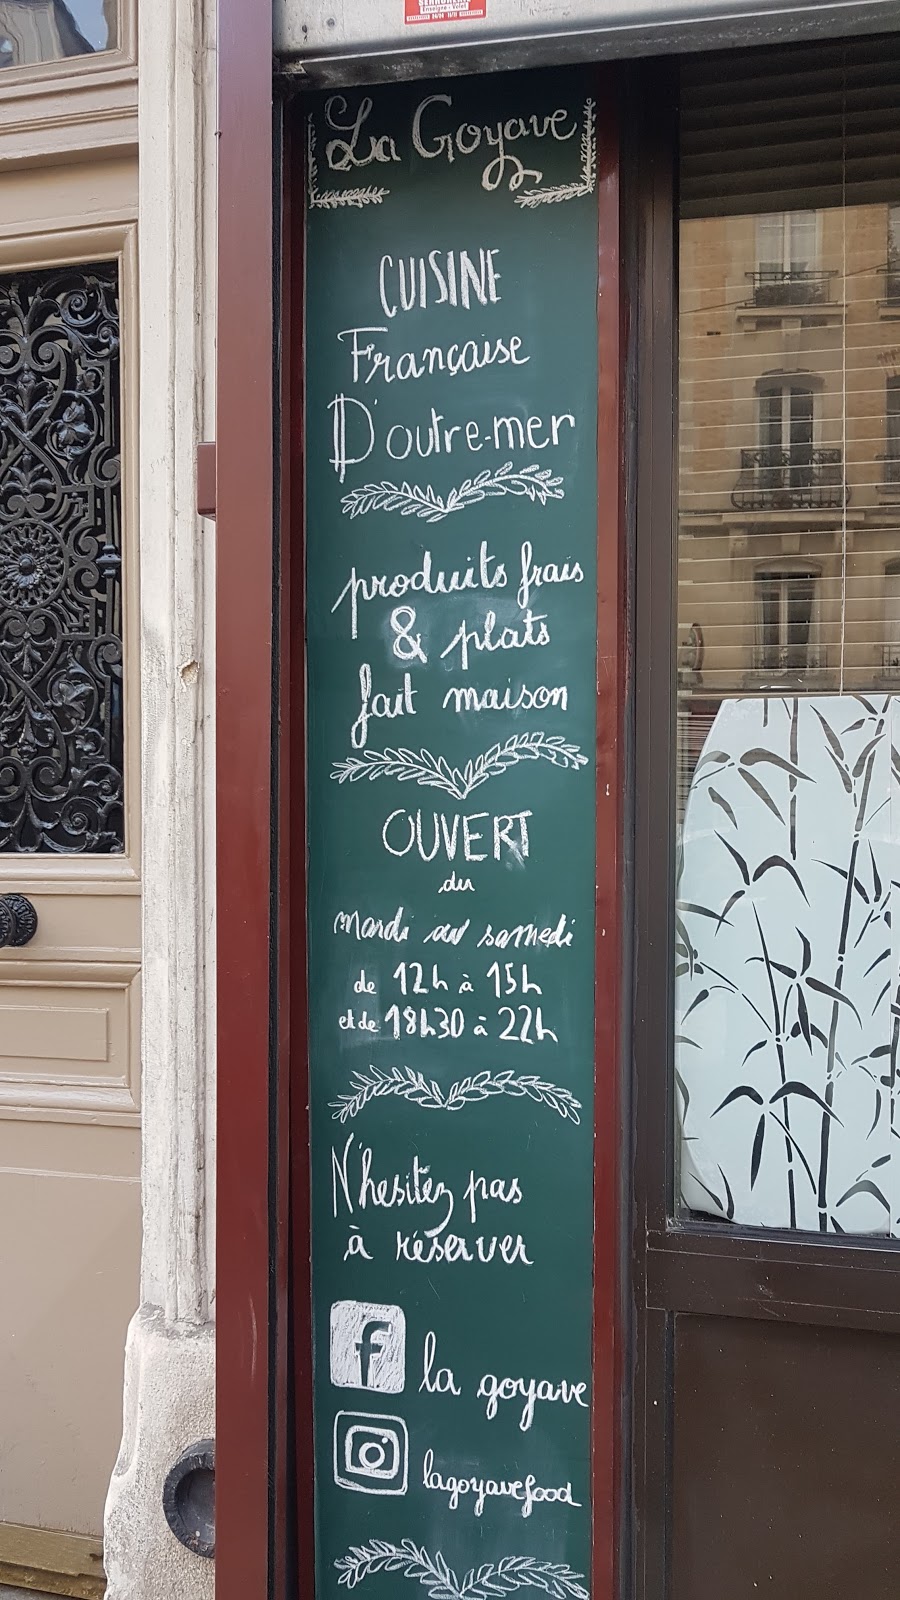 La Goyave
CUISINE
Française
D'outre-mer
produits frais
& plats
fait maison
OUVERT
du
mardi au samedi
de 12h à 15h
et de 18h30 à 22h
N'hesitez pas
à réserver
f la goyave
lagoyavefood